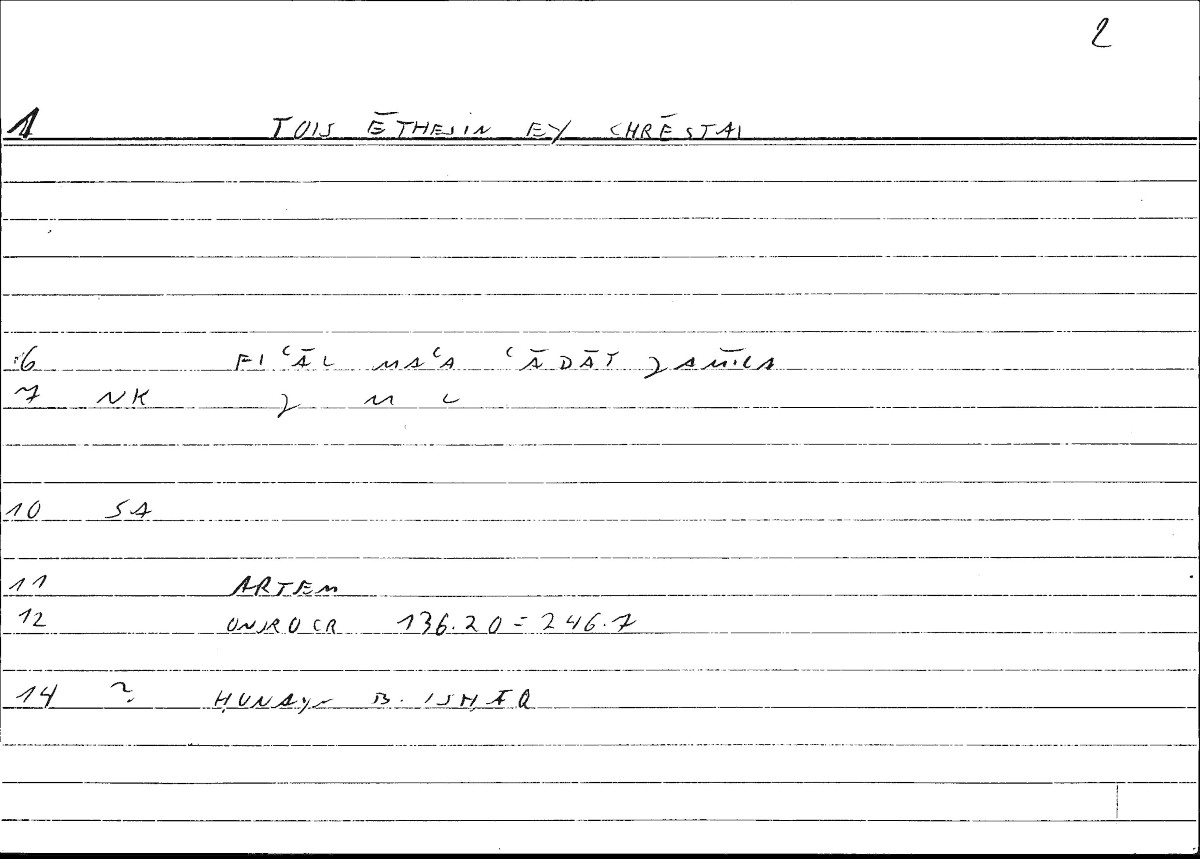 2
1 TOIS ĒTHESIN EY CHRĒSTAI
6 FIʿĀL MAʿA ʿĀDĀT ǦAMĪLA
7 NK Ǧ M L
10 SA
11 ARTEM
12 ONIROCR 136.20 = 246.7
14 ? ḤUNAYN B. ISḤĀQ